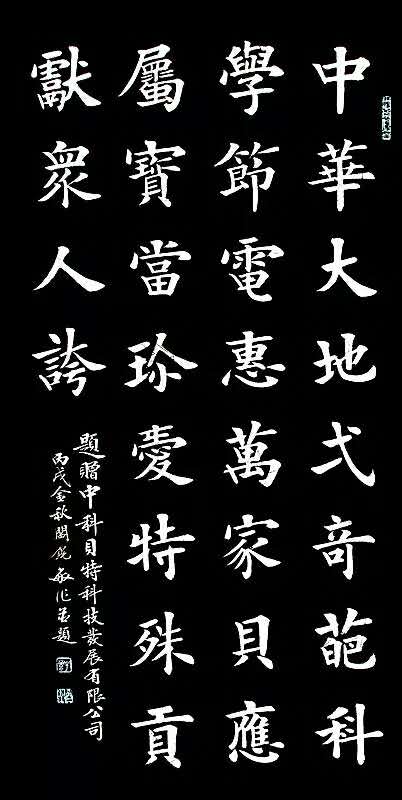 中華大地弌奇葩科
學節電惠萬家貝應
屬寶當珍愛特殊貢
獻衆人誇
題贈中科貝特科技發展有限公司
丙戌金秋閻銳敏作並題